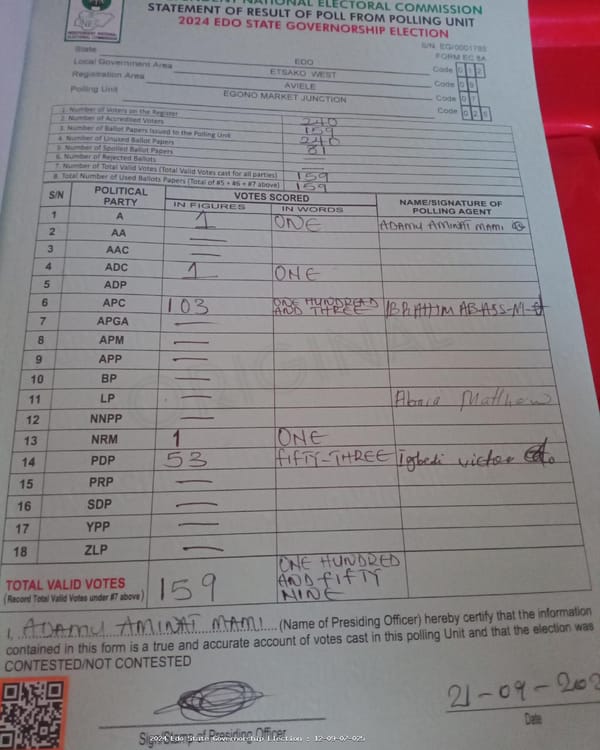 INDEPENDENT NATIONAL ELECTORAL COMMISSION
STATEMENT OF RESULT OF POLL FROM POLLING UNIT
2024 EDO STATE GOVERNORSHIP ELECTION
S/N EG/0001785
FORM EC 8A
State EDO
Local Government Area ETSAKO WEST Code 0 1 2
Registration Area AVIELE Code 0 9
Polling Unit EGONO MARKET JUNCTION Code 0 7
Code 0 2 5
1. Number of Voters on the Register 240
2. Number of Accredited Voters 159
3. Number of Ballot Papers Issued to the Polling Unit 240
4. Number of Unused Ballot Papers 81
5. Number of Spoiled Ballot Papers —
6. Number of Rejected Ballots —
7. Number of Total Valid Votes (Total Valid Votes cast for all parties) 159
8. Total Number of Used Ballots Papers (Total of #5 + #6 + #7 above) 159
S/N POLITICAL PARTY VOTES SCORED NAME/SIGNATURE OF POLLING AGENT
IN FIGURES IN WORDS
1 A 1 ONE ADAMU AMINAT MAMI
2 AA —
3 AAC —
4 ADC 1 ONE
5 ADP
6 APC 103 ONE HUNDREAD AND THREE IBRAHIM ABASS-M
7 APGA —
8 APM —
9 APP —
10 BP —
11 LP — Matthew
12 NNPP —
13 NRM 1 ONE
14 PDP 53 FIFTY-THREE Igbedi victor
15 PRP —
16 SDP —
17 YPP —
18 ZLP —
TOTAL VALID VOTES 159 ONE HUNDRED AND FIFTY NINE
(Record Total Valid Votes under #7 above)
I, ADAMU AMINAT MAMI (Name of Presiding Officer) hereby certify that the information
contained in this form is a true and accurate account of votes cast in this polling Unit and that the election was
CONTESTED/NOT CONTESTED
21-09-202
Sign/Stamp of Presiding Officer Date
2024 Edo State Governorship Election : 12-09-07-025
ORIGINAL